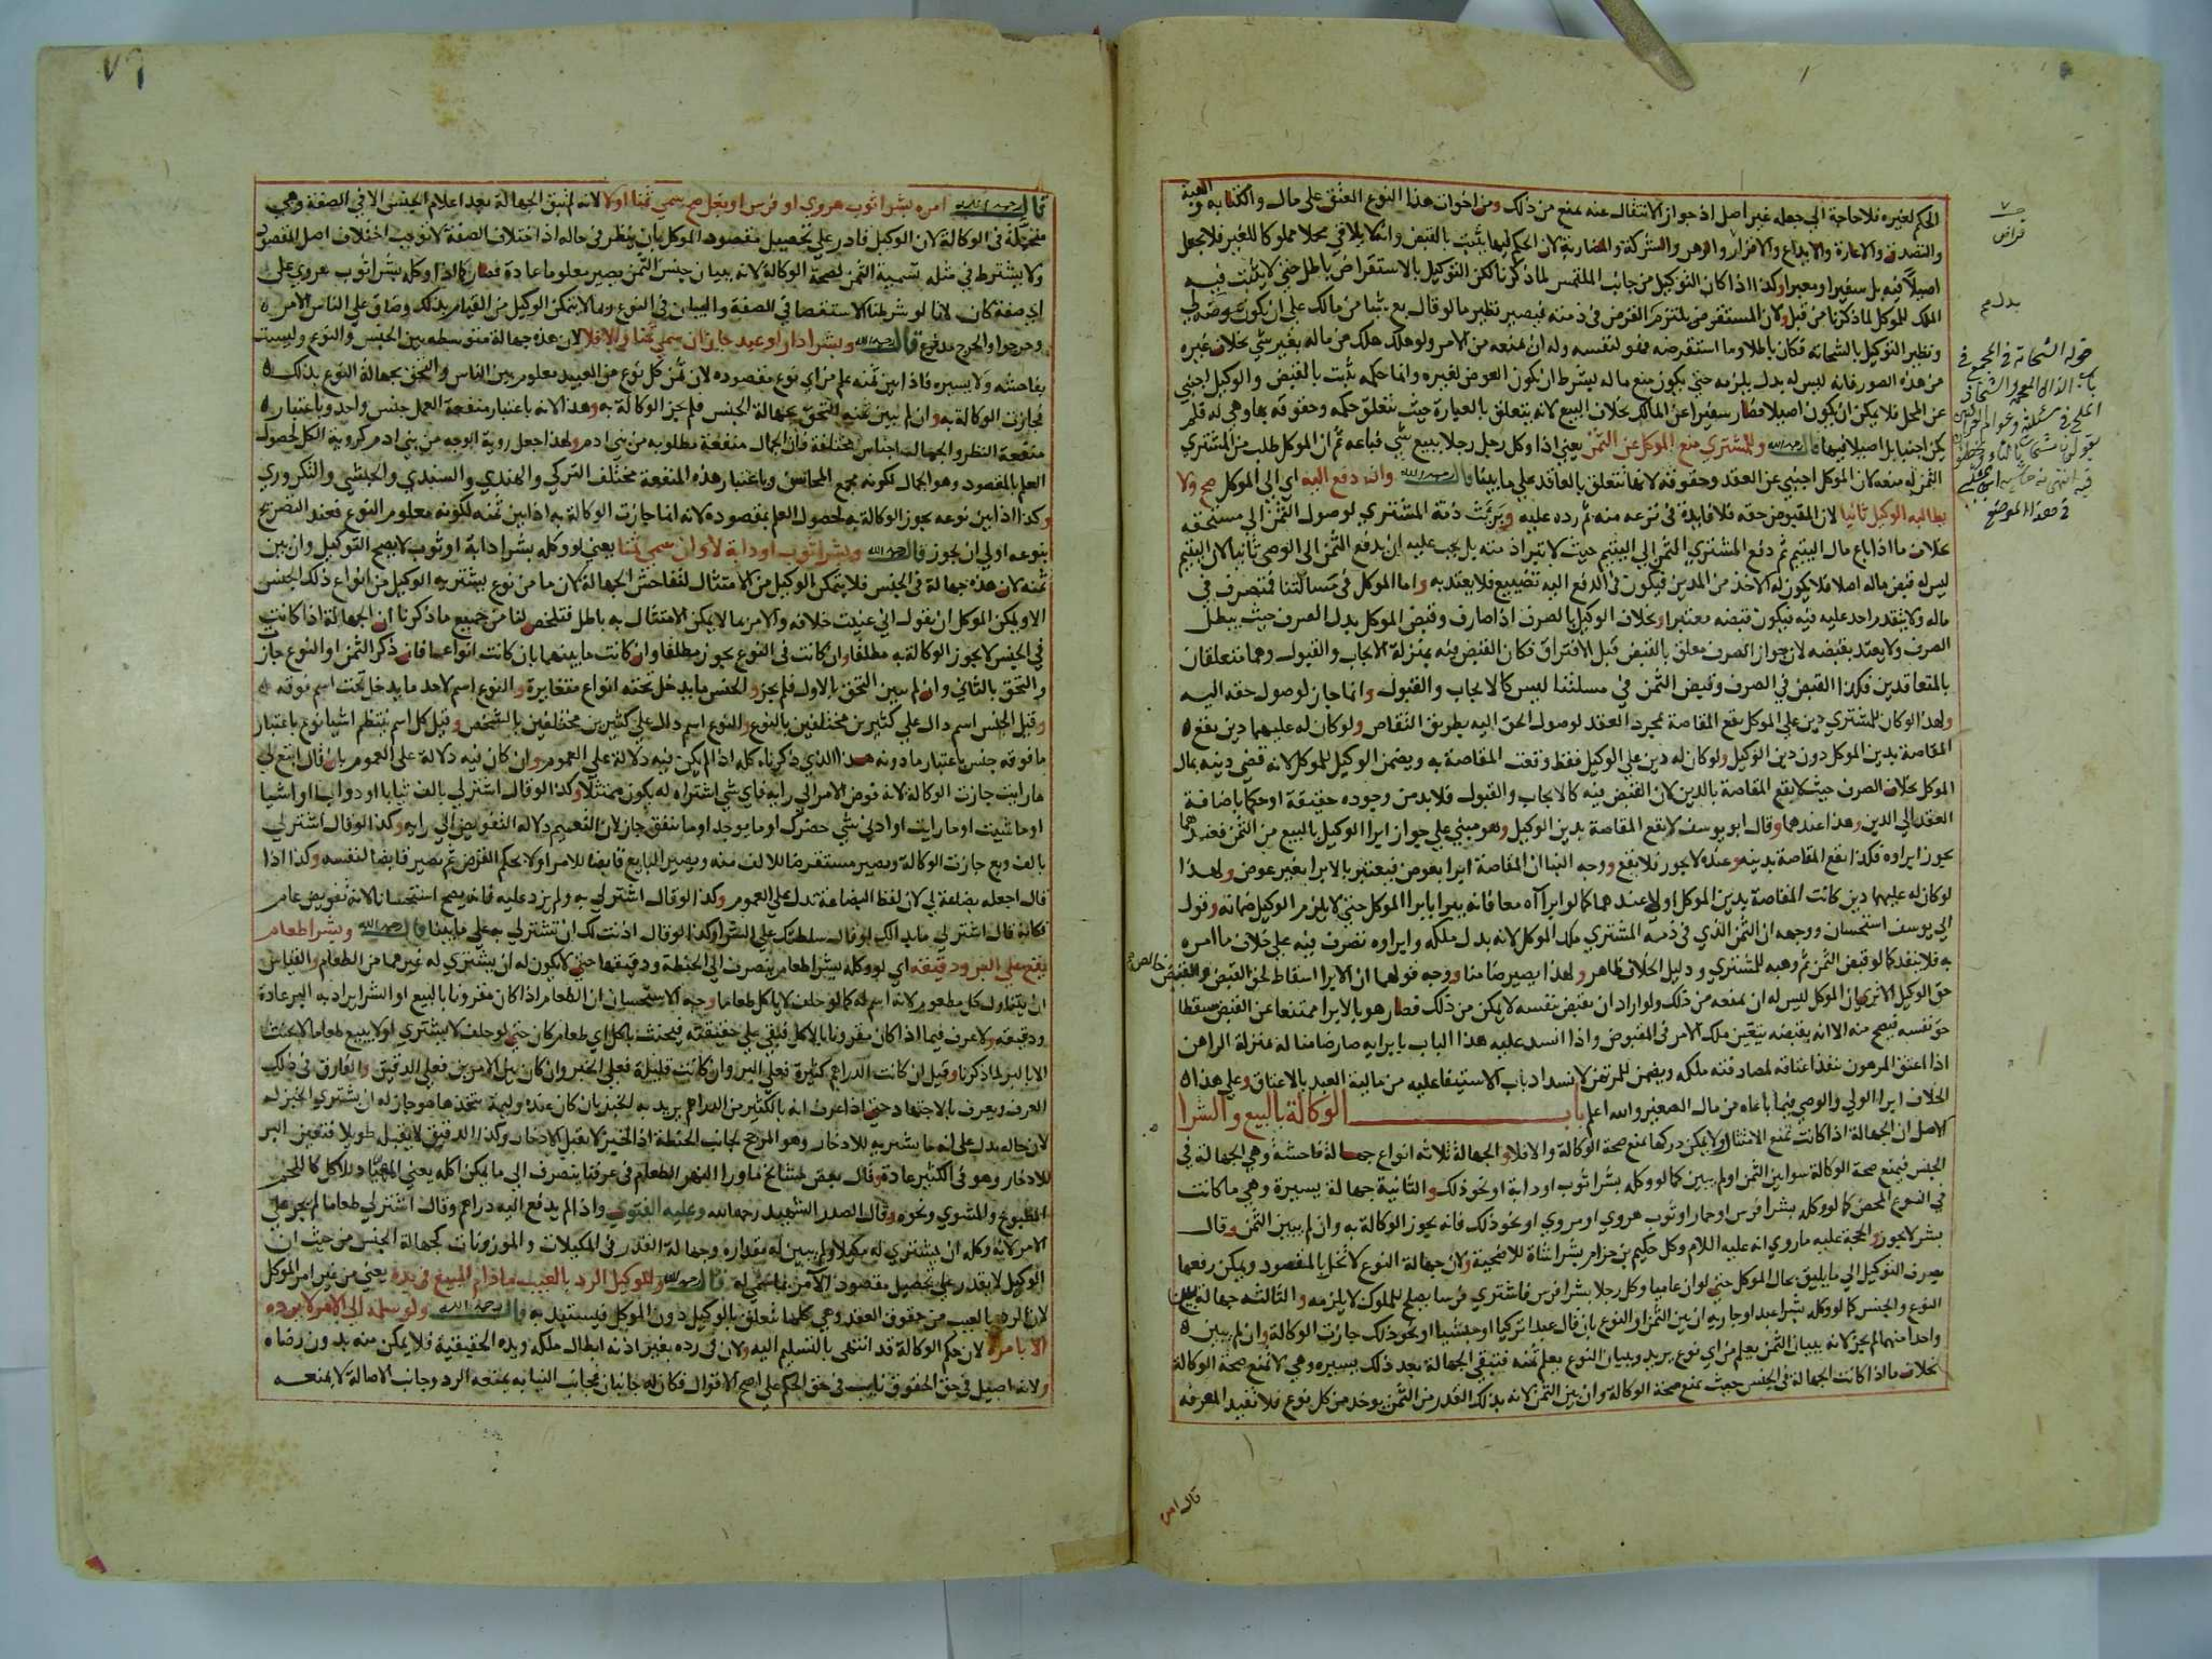 الحكم لغيره فلا حاجة الى جعله غير اصل اذ جواز الانتقال عنه يمنع من ذلك ومن اخوات هذا النوع العتق على مال والكتابة والهبة
والتصدق والاعارة والايداع والاقرار والرهن والشركة والمضاربة لان الحكم فيها يثبت بالقبض وانه يلاقي محلا مملوكا للغير فلا يجعل
اصيلا فيه بل سفيرا ومعبرا وكذا اذا كان التوكيل من جانب الملتمس لما ذكرنا لكن التوكيل بالاستقراض باطل حتى لا يثبت فيه
الملك للموكل لما ذكرنا من قبل ولان المستقرض يلتزم القرض في ذمته فيصير نظير ما لو قال بع شيا من مالك على ان يكون عوضه لي
ونظير التوكيل بالشحاتة فكان باطلا وما استقرضه فهو لنفسه وله ان يمنعه من الامر ولو هلك هلك من ماله بغير شي بخلاف غيره
من هذه الصور فانه ليس له بدل يلزمه حتى يكون منع ماله ليشرط ان يكون العوض لغيره وانما حكمه يثبت بالقبض والوكيل اجنبي
عن المحل فلا يمكن ان يكون اصيلا فصار سفيرا عن المالك بخلاف البيع لانه يتعلق بالعبارة حيث تتعلق حكمه وحقوقه بها وهي له فلم
يكن اجنبيا بل اصيلا فيها قال رحمه الله وللمشتري منع الموكل عن الثمن يعني اذا وكل رجل رجلا ببيع شي فباعه ثم ان الموكل طلب من المشتري
الثمن له منعه لان الموكل اجنبي عن العقد وحقوقه لانها تتعلق بالعاقد على ما بينا قال رحمه الله وان دفع اليه اي الى الموكل صح ولا
يطالبه الوكيل ثانيا لان المقبوض حقه فلا فايدة في نزعه منه ثم رده عليه وبرئت ذمة المشتري لوصول الثمن الى مستحقه
بخلاف ما اذا باع مال اليتيم ثم دفع المشتري الثمن الى اليتيم حيث لا تبرا ذمته بل يجب عليه ان يدفع الثمن الى الوصي ثانيا لان اليتيم
ليس له قبض ماله اصلا فلا يكون له الاخذ من المدين فيكون في الدفع اليه تضييع فلا يعتد به واما الموكل في مسالتنا فمتصرف في
ماله ولا يتقدر احد عليه فيه فيكون قبضه معتبرا وبخلاف الوكيل بالصرف اذا صارف وقبض الموكل بدل الصرف حيث يبطل
الصرف ولا يعتد بقبضه لان جواز الصرف معلق بالقبض قبل الافتراق فكان القبض فيه بمنزلة الايجاب والقبول وهما متعلقان
بالمتعاقدين فكذا القبض في الصرف وقبض الثمن في مسالتنا ليس كالايجاب والقبول وانما جاز لوصول حقه اليه
ولهذا لو كان للمشتري دين على الموكل يقع المقاصة بمجرد العقد لوصول الحق اليه بطريق التقاص ولو كان له عليهما دين يقع
المقاصة بدين الموكل دون دين الوكيل ولو كان له دين على الوكيل فقط وقعت المقاصة به ويضمن الوكيل للموكل لانه قضى دينه بمال
الموكل بخلاف الصرف حيث لا يقع المقاصة بالدين لان القبض فيه كالايجاب والقبول فلا بد من وجوده حقيقة او حكما باضافة
العقد الى الدين وهذا عندهما وقال ابو يوسف لا يقع المقاصة بدين الوكيل وهو مبني على جواز ابرا الوكيل بالبيع من الثمن فعندهما
يجوز ابراوه فكذا يقع المقاصة بدينه وعنده لا يجوز فلا يقع ووجه البنا ان المقاصة ابرا بعوض فيعتبر بالابرا بغير عوض ولهذا
لو كان له عليهما دين كانت المقاصة بدين الموكل اولى عندهما كما لو ابراه معا فانه يبرا بابرا الموكل حتى لا يلزم الوكيل ضمانه وقول
ابي يوسف استحسان ووجهه ان الثمن الذي في ذمة المشتري ملك الموكل لانه بدل ملكه وابراوه تصرف فيه على خلاف ما امره
به فلا ينفذ كما لو قبض الثمن ثم وهبه للمشتري ودليل الخلاف ظاهر ولهذا يصير ضامنا ووجه قولهما ان الابرا اسقاط لحق القبض والقبض خالص
حق الوكيل الا ترى ان الموكل ليس له ان يمنعه من ذلك ولو اراد ان يقبض بنفسه لا يمكن من ذلك فصار هو بالابرا ممتنعا عن القبض مسقطا
حق نفسه فيصح منه الا انه بقبضه يتعين ملك الامر في المقبوض واذا انسد عليه هذا الباب بابرايه صار ضامنا له بمنزلة الراهن
اذا اعتق المرهون ينفذ اعتاقه لمصادفته ملكه ويضمن للمرتهن لانسداد باب الاستيفا عليه من مالية العبد بالاعتاق وعلى هذا
الخلاف ابرا الولي والوصي فيما باعاه من مال الصغير والله اعلم باب الوكالة بالبيع والشرا
الاصل ان الجهالة اذا كانت تمنع الامتثال ولا يمكن دركها تمنع صحة الوكالة والا فلا والجهالة ثلاثة انواع جهالة فاحشة وهي الجهالة في
الجنس فيمنع صحة الوكالة سوا بين الثمن او لم يبين كما لو وكله بشرا ثوب او دابة او نحو ذلك والثانية جهالة يسيرة وهي ما كانت
في النوع المحض كما لو وكله بشرا فرس او حمار او ثوب هروي او مروي او نحو ذلك فانه يجوز الوكالة به وان لم يبين الثمن وقال
بشر لا يجوز والحجة عليه ما روي انه عليه السلام وكل حكيم بن حزام بشرا شاة للاضحية ولان جهالة النوع لا تخل بالمقصود ويمكن رفعها
بصرف التوكيل الى ما يليق بحال الموكل حتى لو ان عاميا وكل رجلا بشرا فرس فاشترى فرسا يصلح للملوك لا يلزمه والثالثة جهالة بين
النوع والجنس كما لو وكله بشرا عبد او جارية ان بين الثمن او النوع بان قال عبدا تركيا او حبشيا او نحو ذلك جازت الوكالة وان لم يبين
واحدا منهما لم يجز لانه ببيان الثمن يعلم من اي نوع يريد وببيان النوع يعلم ثمنه فتبقى الجهالة بعد ذلك يسيرة وهي لا تمنع صحة الوكالة
بخلاف ما اذا كانت الجهالة في الجنس حيث تمنع صحة الوكالة وان بين الثمن لانه بذلك القدر من الثمن يوخذ من كل نوع فلا تفيد المعرفة
قال امره
بدل
قوله الشحاتة في المجمع في
باب الذال المعجمة الشحاذ
٧٦
قال رحمه الله امره بشرا ثوب هروي او فرس او بغل صح سمى ثمنا اولا لانه لم تبق الجهالة بعد اعلام الجنس الا في الصفة وهي
متحملة في الوكالة لان الوكيل قادر على تحصيل مقصود الموكل بان ينظر في حاله اذ اختلاف الصفة لا توجب اختلاف اصل المقصود
ولا يشترط في مثله تسمية الثمن لصحة الوكالة لانه ببيان جنس الثمن يصير معلوما عادة فصار كما اذا وكله بشرا ثوب هروي على
اي صفة كان لانا لو شرطنا الاستقصا في الصفة والبيان في النوع ربما لا يتمكن الوكيل من القيام بذلك وضاق على الناس الامر
وحرجوا والحرج مدفوع قال رحمه الله وبشرا دار او عبد جاز ان سمى ثمنا والا فلا لان هذه جهالة متوسطة بين الجنس والنوع وليست
بفاحشة ولا يسيرة فاذا بين ثمنه علم من اي نوع مقصوده لان ثمن كل نوع من العبيد معلوم بين الناس والتحق بجهالة النوع بذلك
فجازت الوكالة به وان لم يبين ثمنه التحق بجهالة الجنس فلم يجز الوكالة به وهذا لانه باعتبار منفعة العمل جنس واحد وباعتبار
منفعة النظر والجمال اجناس مختلفة فان الجمال منفعة مطلوبة من بني ادم ولهذا جعل روية الوجه من بني ادم كروية الكل لحصول
العلم بالمقصود وهو الجمال لكونه مجمع المحاسن وباعتبار هذه المنفعة مختلف التركي والهندي والسندي والحبشي والتكروري
وكذا اذا بين نوعه يجوز الوكالة به لحصول العلم بمقصوده لانه انما جازت الوكالة به اذا بين ثمنه لكونه معلوم النوع فعند التصريح
بنوعه اولى ان يجوز قال رحمه الله وبشرا ثوب او دابة لا وان سمى ثمنا يعني لو وكله بشرا دابة او ثوب لا يصح التوكيل وان بين
ثمنه لان هذه جهالة في الجنس فلا يتمكن الوكيل من الامتثال لتفاحش الجهالة لان ما من نوع يشتريه الوكيل من انواع ذلك الجنس
الا ويمكن الموكل ان يقول اني عنيت خلافه والامر بما لا يمكن الامتثال به باطل فتلخص لنا من جميع ما ذكرنا ان الجهالة اذا كانت
في الجنس لا يجوز الوكالة به مطلقا وان كانت في النوع يجوز مطلقا وان كانت ما بينهما بان كانت انواعا فان ذكر الثمن او النوع جازت
والتحق بالثاني وان لم يبين التحق بالاول فلم يجز والجنس ما يدخل تحته انواع متغايرة والنوع اسم لاحد ما يدخل تحت اسم فوقه
وقيل الجنس اسم دال على كثيرين مختلفين بالنوع والنوع اسم دال على كثيرين مختلفين بالشخص وقيل كل اسم ينتظم اشيا نوع باعتبار
ما فوقه جنس باعتبار ما دونه هذا الذي ذكرناه كله اذا لم يكن فيه دلالة على العموم وان كان فيه دلالة على العموم بان قال ابتع لي
ما رايت جازت الوكالة لانه فوض الامر الى رايه فاي شي اشتراه له يكون ممتثلا وكذا لو قال اشتر لي بالف ثيابا او دواب او اشيا
او ما شيت او ما رايت او ادنى شي حضرك او ما يوجد او ما يتفق جاز لان التعميم دلالة التفويض الى رايه وكذا لو قال اشتر لي
بالف وبع جازت الوكالة ويصير مستقرضا للالف منه ويصير البايع قابضا للامر اولا بحكم القرض ثم يصير قابضا لنفسه وكذا اذا
قال اجعله بضاعة لي لان لفظ البضاعة تدل على العموم وكذا لو قال اشتر لي به ولم يزد عليه فانه يصح استحسانا لانه تفويض عام
فكانه قال اشتر لي ما بدا لك لو قال سلطتك على الشرا وكذا لو قال اذنت لك ان تشتر لي به على ما بينا قال رحمه الله وبشرا طعام
يقع على البر ودقيقه اي لو وكله بشرا طعام ينصرف الى الحنطة ودقيقها حتى لا يكون له ان يشتري له غيرهما من الطعام والقياس
ان يتناول كل مطعوم لانه اسم له كما لو حلف لا ياكل طعاما وجه الاستحسان ان الطعام اذا كان مقرونا بالبيع او الشرا يراد به البر عادة
ودقيقه ولا عرف فيما اذا كان مقرونا بالاكل فبقي على حقيقته فيحنث باكل اي طعام كان حتى لو حلف لا يشتري او لا يبيع طعاما لا يحنث
الا بالبر لما ذكرنا وقيل ان كانت الدراهم كثيرة فعلى البر وان كانت قليلة فعلى الخبز وان كان بين الامرين فعلى الدقيق والفارق في ذلك
العرف ويعرف بالاجتهاد حتى اذا عرف انه بالكثير من الدراهم يريد به الخبز بان كان عنده وليمة يتخذها هو جاز له ان يشتري الخبز له
لان حاله يدل على انه ما يشتريه للادخار وهو المرجح لجانب الحنطة اذ الخبز لا يقبل الادخار وكذا الدقيق لا يقبل طويلا فتعين البر
للادخار وهو في الكثير عادة وقال بعض مشايخ ما ورا النهر الطعام في عرفنا ينصرف الى ما يمكن اكله يعني المهيا للاكل كاللحم
المطبوخ والمشوي ونحوه وقال الصدر الشهيد رحمه الله وعليه الفتوى واذا لم يدفع اليه دراهم وقال اشتر لي طعاما لم يجز على
الامر لانه وكله ان يشتري له مكيلا ولم يبين له مقداره وجهالة القدر في المكيلات والموزونات كجهالة الجنس من حيث ان
الوكيل لا يقدر على تحصيل مقصود الآمر بما سمى له قال رحمه الله وللوكيل الرد بالعيب ما دام المبيع في يده يعني من غير امر الموكل
لان الرد بالعيب من حقوق العقد وهي كلها تتعلق بالوكيل دون الموكل فيستبد به قال رحمه الله ولو سلمه الى الامر لا يرده
الا بامره لان حكم الوكالة قد انتهى بالتسليم اليه ولان في رده بغير اذنه ابطال ملكه ويده الحقيقية فلا يمكن منه بدون رضاه
ولانه اصيل في حق الحقوق نايب في حق الحكم على اصح الاقوال فكان له جانبان فجانب النيابه يمنعه الرد وجانب الاصالة لا يمنعه